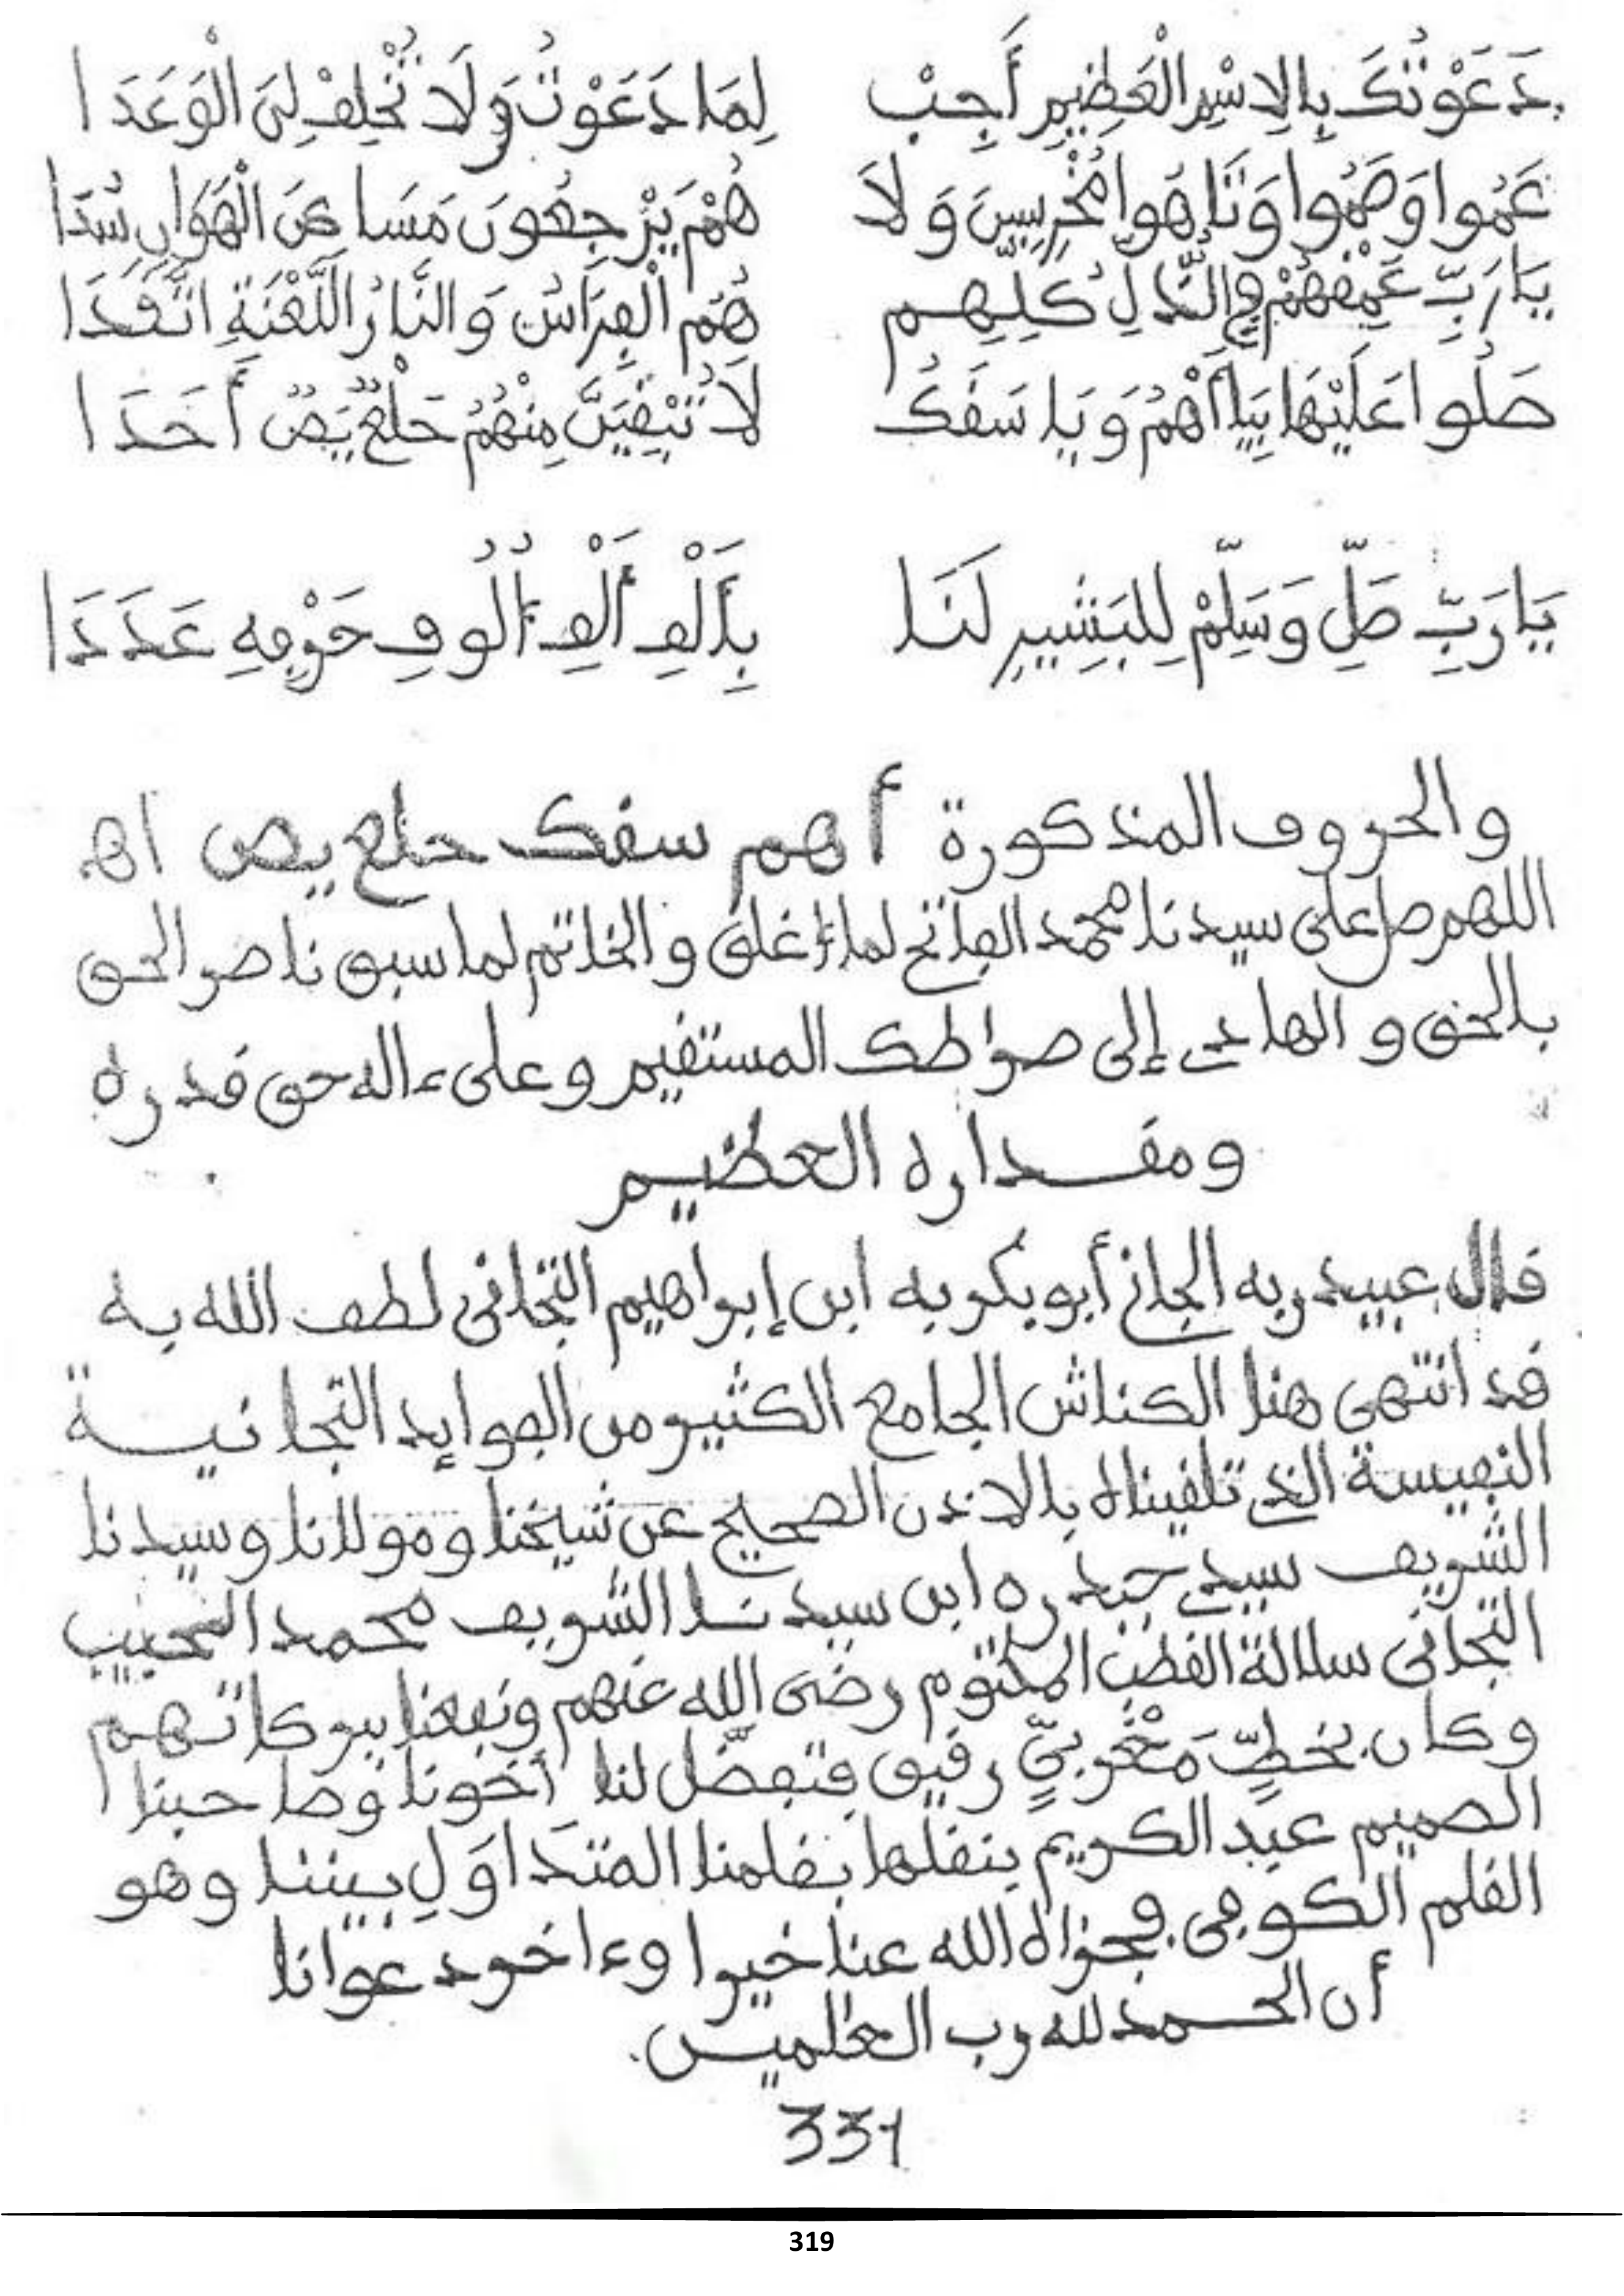 دَعَوْتُكَ بِالِاسْمِ الْعَظِيمِ أَجِبْ لِمَا دَعَوْتُ وَلَا تُخْلِفْ لِيَ الْوَعَدَا
عَمُوا وَصَمُّوا وَتَاهُوا مُخْرَسِينَ وَلَا هُمْ يَرْجِعُونَ مَسَا عَنَ الْهَوَانِ سُدَا
يَا رَبِّ عَمِّقْهُمْ فِي الذُّلِّ كُلِّهِم هُمُ الْفِرَاشُ وَالنَّارُ اللَّعْنَةِ اتَّقَدَا
صَلُوا عَلَيْهَا بِيَا أَهُمْ وَيَا سَقَكُ لَا تُبْقِيَنَّ مِنْهُمُ حَلْعٌ يَصٌ أَحَدَا
يَا رَبِّ صَلِّ وَسَلِّمْ لِلبَشِيرِ لَنَا بِأَلْفِ أَلْفِ أُلُوفِ حَرْفِهِ عَدَدَا
والحروف المذكورة أهم سقك حلع يص اه
اللهم صل على سيدنا محمد الفاتح لما أغلق والخاتم لما سبق ناصر الحق
بالحق والهادي إلى صراطك المستقيم وعلى ءاله حق قدره
ومقداره العظيم
قال عبيد ربه الجاني أبو بكر به ابن إبراهيم التجاني لطف الله به
قد انتهى هنا الكناش الجامع الكثير من الفوايد التجانية
النفيسة الذي تلقيناه بالاذن الصحيح عن شيخنا ومولانا وسيدنا
الشريف سيدي حيدره ابن سيدنا الشريف محمد الحبيب
التجاني سلالة القطب المكتوم رضى الله عنهم ونفعنا ببركاتهم
وكان بخطٍّ مَغْرِبيٍّ رقيق فتفضّل لنا أخونا وصاحبنا
الصميم عبد الكريم بنقلها بقلمنا المتدَاوَلِ بيننا وهو
القلم الكوفى فجزاه الله عنا خيرا وءاخر دعوانا
أن الحمد لله رب العلمين.
331
319